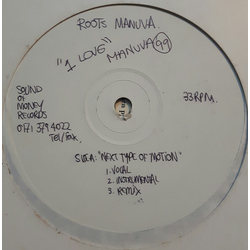 ROOTS MANUVA
"1 LOVE" MANUVA 99
SOUND
OF
MONEY
RECORDS
0171 379 4022
Tel/Fax.
33RPM.
SIDE A: "NEXT TYPE OF MOTION"
1. VOCAL
2. INSTRUMENTAL
3. REMIX